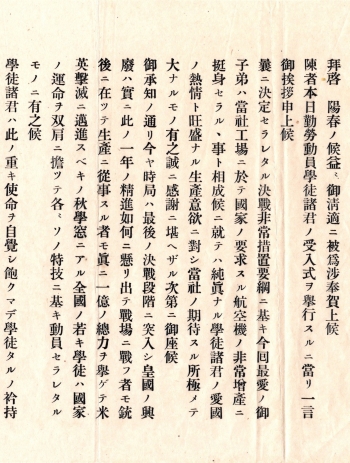 拜啓　陽春ノ候益〻御清適ニ被爲涉奉賀上候
陳者本日勤勞動員學徒諸君ノ受入式ヲ擧行スルニ當リ一言
御挨拶申上候
曩ニ決定セラレタル決戰非常措置要綱ニ基キ今回最愛ノ御
子弟ハ當社工場ニ於テ國家ノ要求スル航空機ノ非常增產ニ
挺身セラルヽ事ト相成候ニ就テハ純眞ナル學徒諸君ノ愛國
ノ熱情ト旺盛ナル生產意欲ニ對シ當社ノ期待スル所極メテ
大ナルモノ有之誠ニ感謝ニ堪ヘザル次第ニ御座候
御承知ノ通リ今ヤ時局ハ最後ノ決戰段階ニ突入シ皇國ノ興
廢ハ實ニ此ノ一年ノ精進如何ニ懸リ出テ戰場ニ戰フ者モ銃
後ニ在ツテ生產ニ從事スル者モ眞ニ一億ノ總力ヲ擧ゲテ米
英擊滅ニ邁進スベキノ秋學窓ニアル全國ノ若キ學徒ハ國家
ノ運命ヲ双肩ニ擔ツテ各〻ソノ特技ニ基キ動員セラレタル
モノニ有之候
學徒諸君ハ此ノ重キ使命ヲ自覺シ飽クマデ學徒タルノ衿持